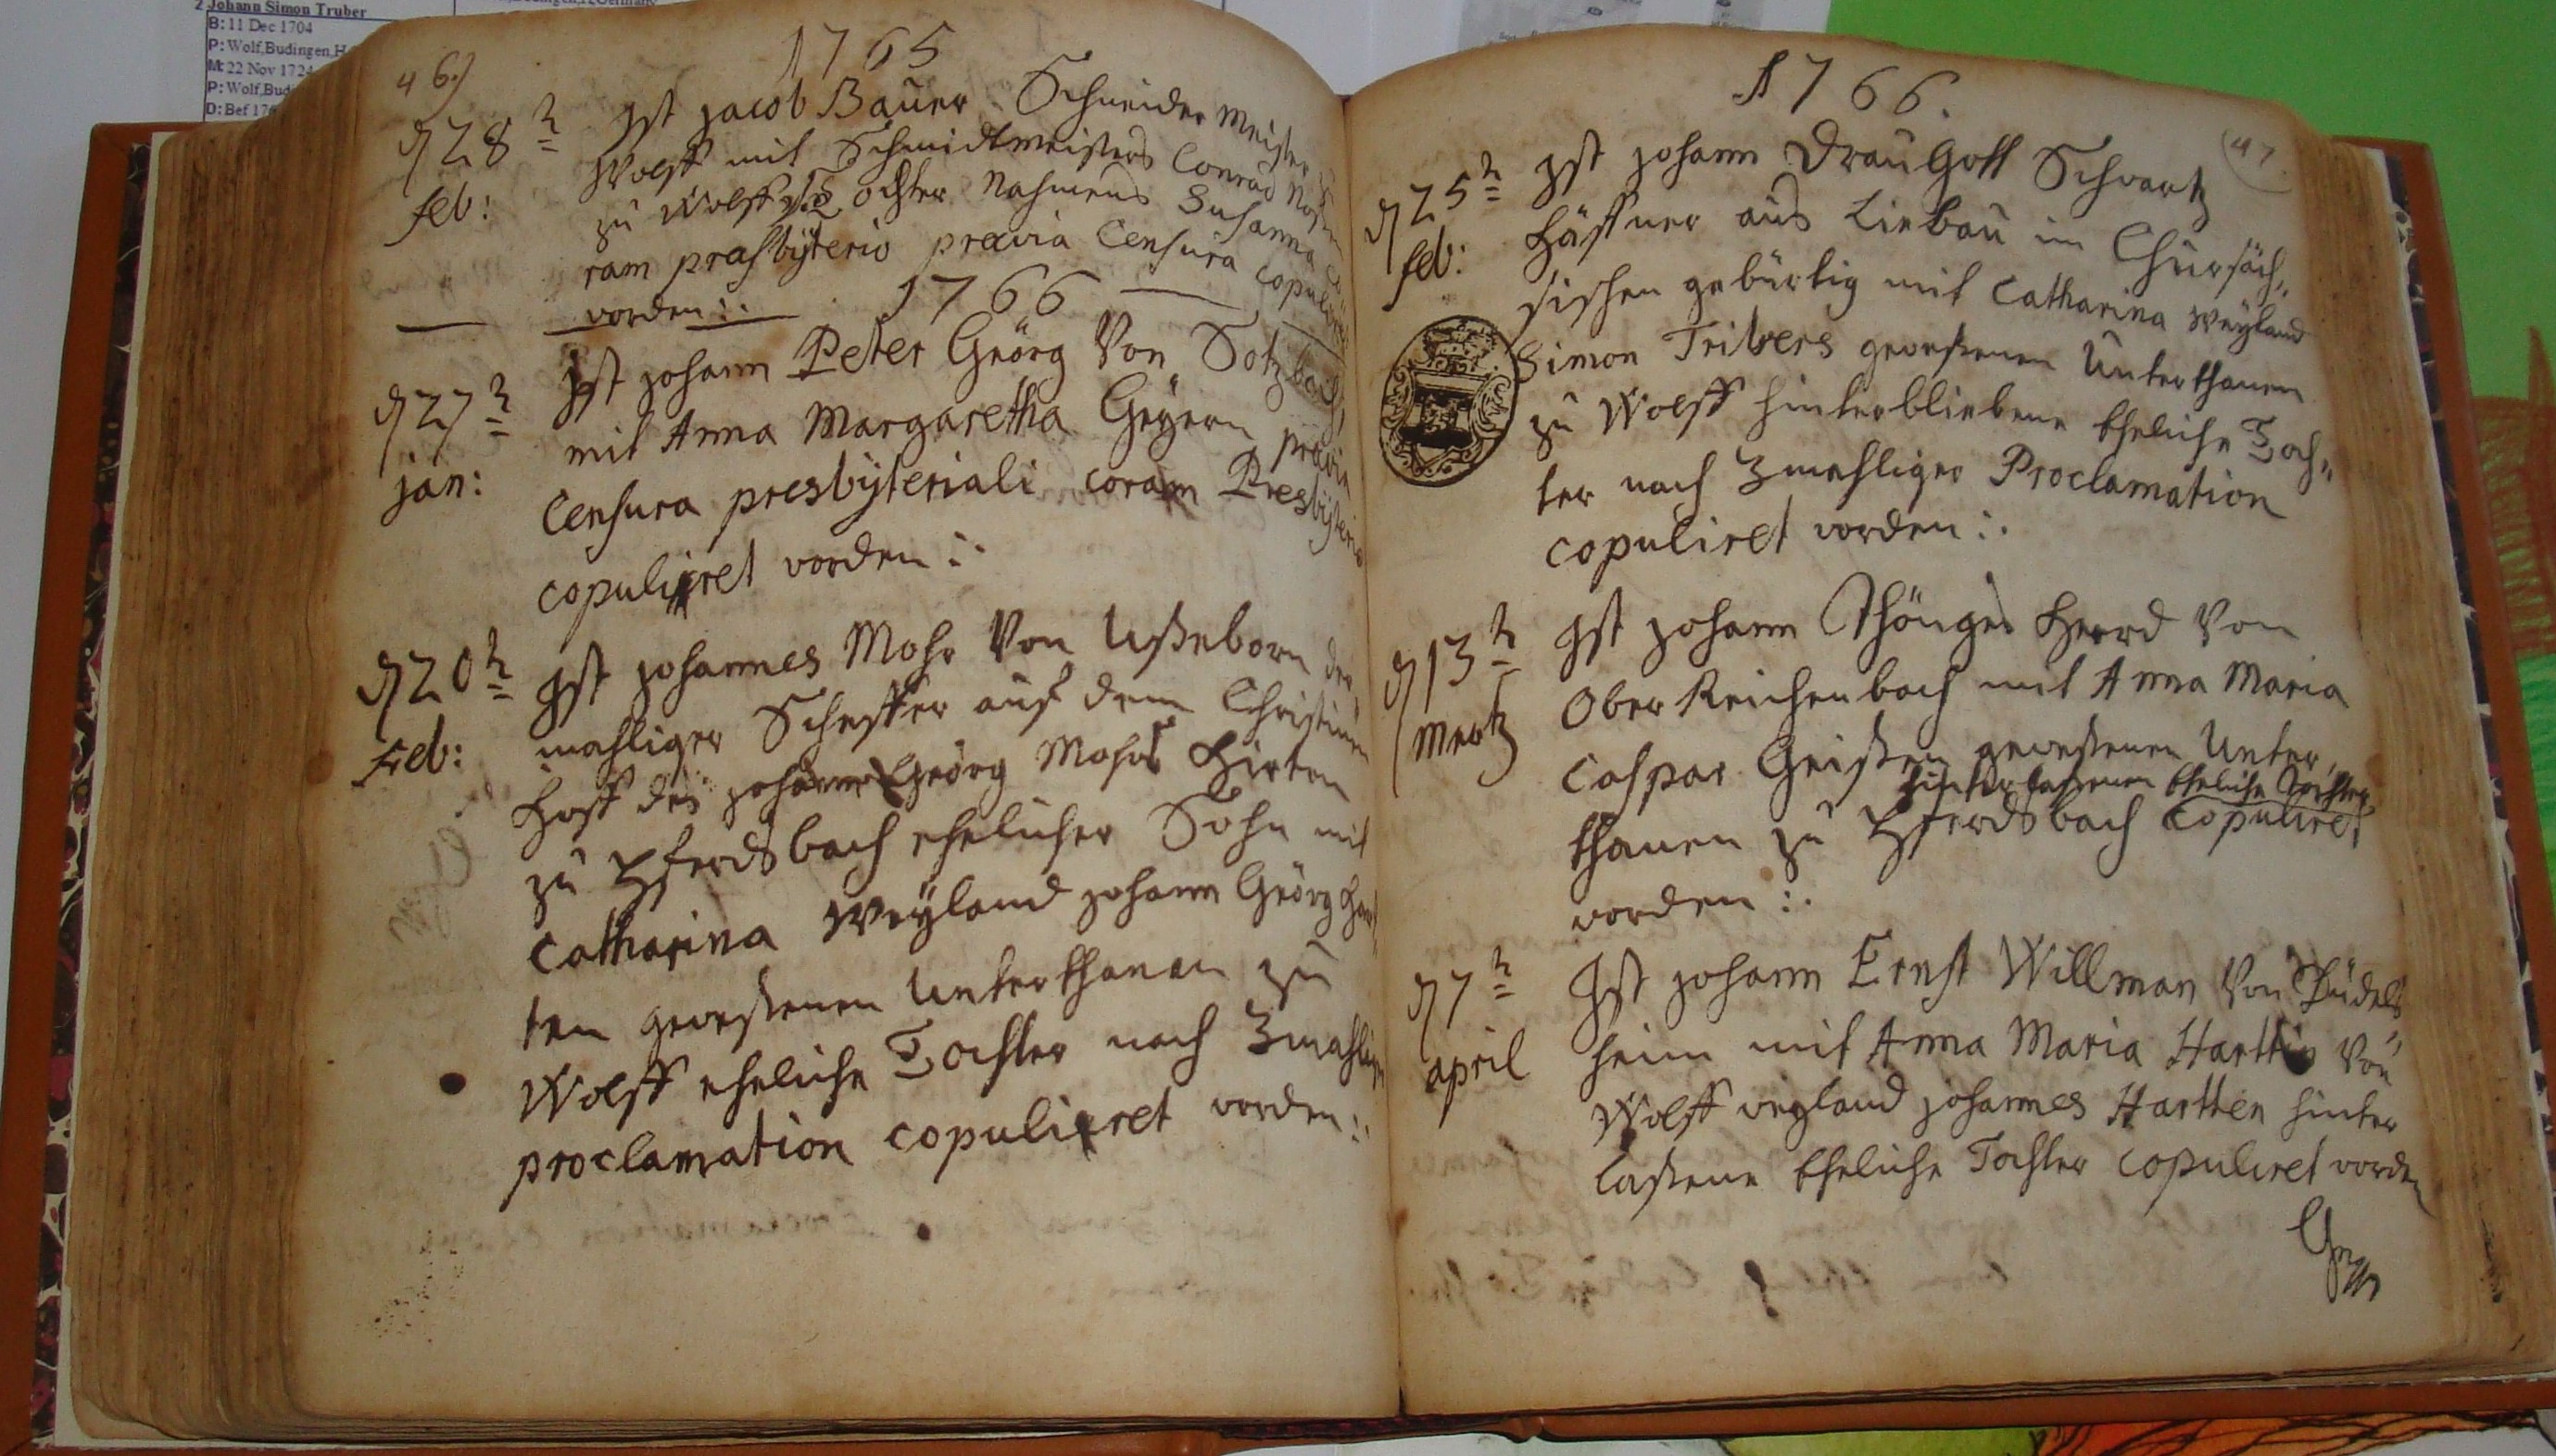 2 Johann Simon Truber
B: 11 Dec 1704
P: Wolf,Budingen,H
M: 22 Nov 1724
P: Wolf,Bud
D: Bef 176
46.)
1765
d 28 n
feb:
Ist Jacob Bauer Schneider Meister
Wolff mit Schmidtmeisters Conrad
zu Wolff Tochter Nahmens Susanna
ram presbyterio prævia Censura copuliret
worden :.
1766
d 27 n
jan:
Ist Johann Peter Georg Von Sotzbach
mit Anna Margaretha Geyern prævia
Censura presbyteriali coram Presbyterio
copuliret worden :.
d 20 n
Feb:
Ist Johannes Mohr Von Ußeborn der
mahliger Scheffer auf dem Christinen
Hoff des Johann Georg Mohrs Hirten
zu Pferdsbach ehelicher Sohn mit
Catharina Weyland Johann Georg Har
ten geweßenen Unterthanen zu
Wolff eheliche Tochter nach 3mahliger
proclamation copuliret worden :.
1766.
47
d 25 n
feb:
Ist Johann Draugott Schwartz
Häffner aus Liebau im Chursäch„
sischen gebürtig mit Catharina Weyland
Simon Tribers geweßenen Unterthanen
zu Wolff hinterbliebene Eheliche Toch„
ter nach 3mahliger Proclamation
copuliret worden :.
d 13 n
Mertz
Ist Johann Thönges Herd Von
Ober Reichenbach mit Anna Maria
Caspar Geißen geweßenen Unter„
hinterlaßenen Eheliche Tochter
thanen zu Pferdsbach Copuliret
worden :.
d 7 n
april
Ist Johann Ernst Willman Von Büdels„
heim mit Anna Maria Hartt Von
Wolff weyland Johannes Hartten hinter
laßene Eheliche Tochter copuliret worden